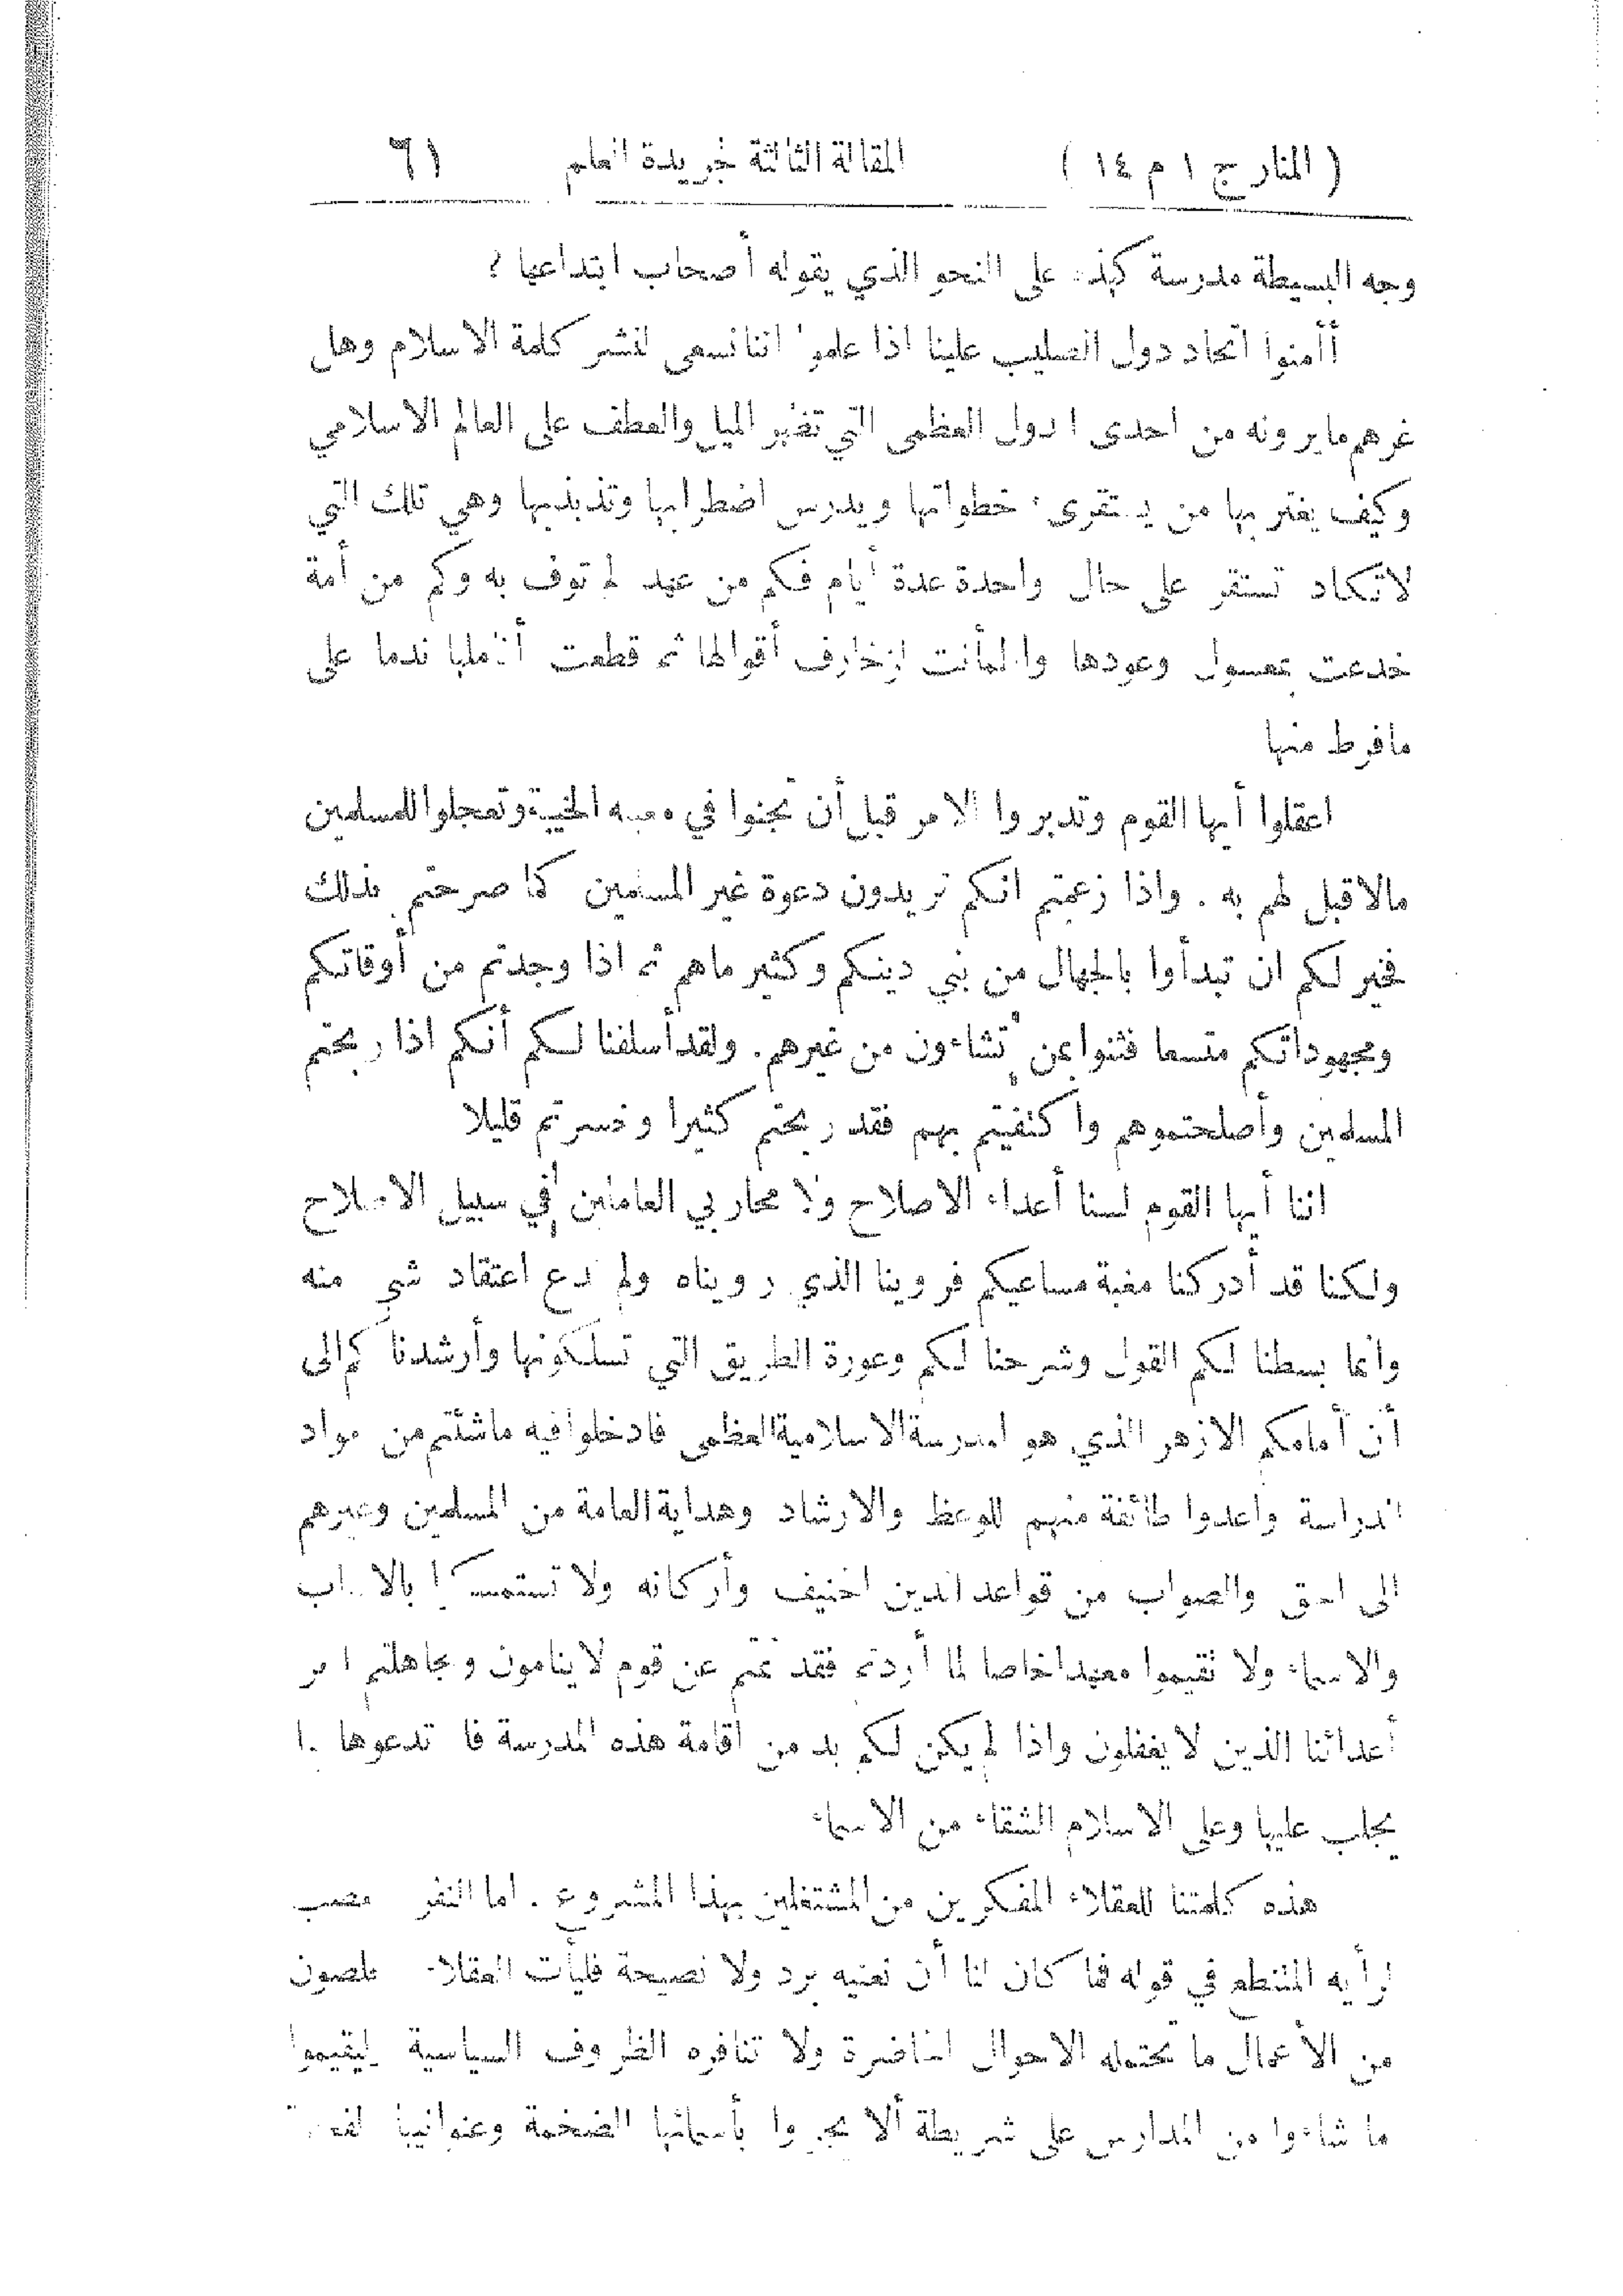 ( المنار ج ١ م ١٤ ) المقالة الثالثة لجريدة العلم ٦١
وجه البسيطة مدرسة كهذه على النحو الذي يقوله أصحاب ابتداعها ؟
أأمنوا اتحاد دول الصليب علينا اذا علموا اننا نسعى لنشر كلمة الاسلام وهل
غرهم ما يرونه من احدى الدول العظمى التي تظهر الميل والعطف على العالم الاسلامي
وكيف يغتر بها من يستقرىء خطواتها ويدرس اضطرابها وتذبذبها وهي تلك التي
لا تكاد تستقر على حال واحدة عدة أيام فكم من عهد لم توف به وكم من أمة
خدعت بمعسول وعودها واطمأنت لزخارف أقوالها ثم قطعت أناملها ندما على
ما فرط منها
اعقلوا أيها القوم وتدبروا الامر قبل أن تجنوا في مغبه الخيبة وتعجلوا للمسلمين
مالا قبل لهم به . واذا زعمتم انكم تريدون دعوة غير المسلمين كما صرحتم بذلك
فخير لكم ان تبدأوا بالجهال من بني دينكم وكثير ماهم ثم اذا وجدتم من أوقاتكم
ومجهوداتكم متسعا فثنوا بمن تشاءون من غيرهم . ولقد أسلفنا لكم أنكم اذا ربحتم
المسلمين وأصلحتموهم واكتفيتم بهم فقد ربحتم كثيرا وخسرتم قليلا
اننا أيها القوم لسنا أعداء الاصلاح ولا محاربي العاملين في سبيل الاصلاح
ولكنا قد أدركنا مغبة مساعيكم فروينا الذي رويناه ولم ندع اعتقاد شيء منه
وانما بسطنا لكم القول وشرحنا لكم وعورة الطريق التي تسلكونها وأرشدناكم الى
أن أمامكم الازهر الذي هو المدرسة الاسلامية العظمى فادخلوا فيه ما شئتم من مواد
الدراسة واعدوا طائفة منهم للوعظ والارشاد وهداية العامة من المسلمين وغيرهم
الى الحق والصواب من قواعد الدين الحنيف وأركانه ولا تستمسكوا بالالقاب
والاسماء ولا تقيموا معهدا خاصا لما أردتم فقد نمتم عن قوم لا ينامون وتجاهلتم امر
أعدائنا الذين لا يغفلون واذا لم يكن لكم بد من اقامة هذه المدرسة فلا تدعوها بما
يجلب عليها وعلى الاسلام الشقاء من الاسماء
هذه كلمتنا للعقلاء المفكرين من المشتغلين بهذا المشروع . اما النفر المتعصب
لرأيه المتنطع في قوله فما كان لنا أن نعنيه برد ولا نصيحة فليأت العقلاء المخلصون
من الأعمال ما تحتمله الاحوال الحاضرة ولا تنافره الظروف السياسية وليقيموا
ما شاءوا من المدارس على شريطة ألا يجهروا بأسمائها الضخمة وعنوانها